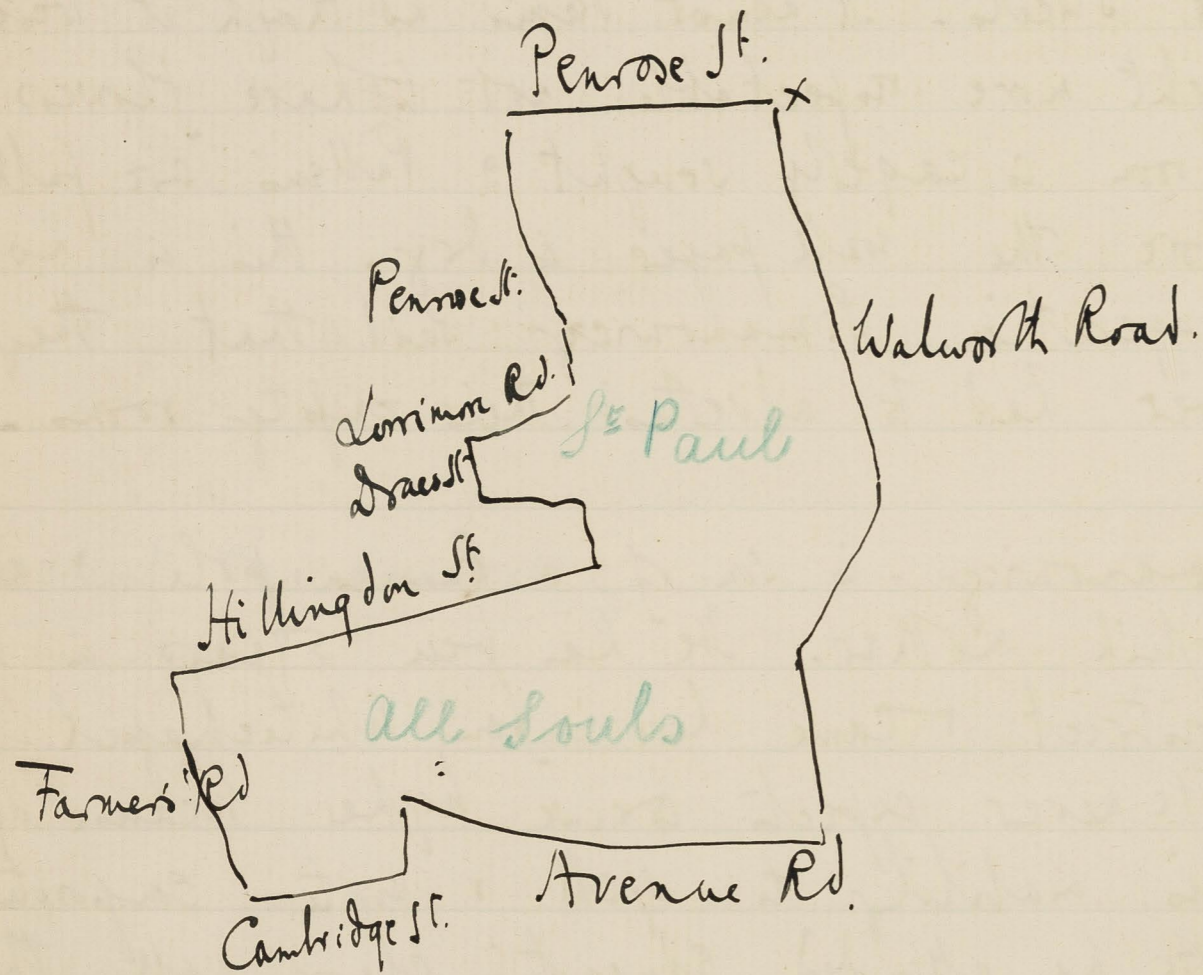 Penrose St.
x
Penrose St.
Walworth Road.
Lorrimore Rd.
St Paul
Draco St
Hillingdon St.
All Souls
Farmers' Rd
Avenue Rd.
Cambridge St.